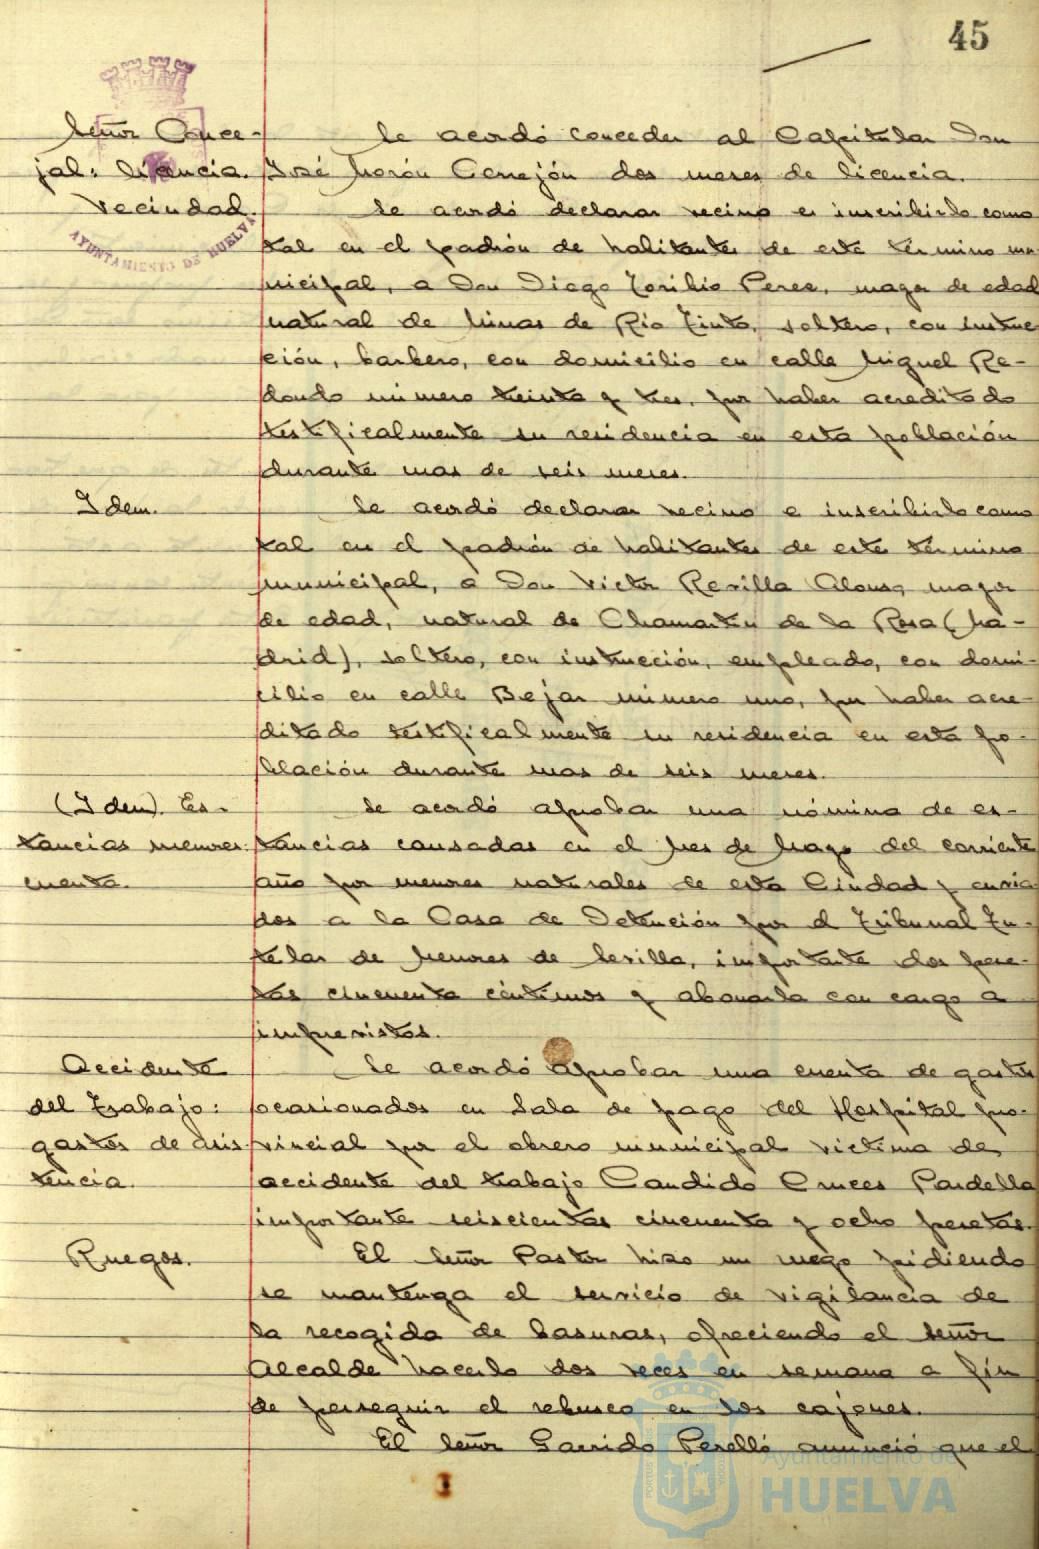 45
Señor Conce-
jal: licencia.
Se acordó conceder al Capitular Don
José Morón Cerrejón dos meses de licencia.
Vecindad.
AYUNTAMIENTO DE HUELVA
Se acordó declarar vecino e inscribirlo como
tal en el padrón de habitantes de este término mu
nicipal, a Don Diego Toribio Perez, mayor de edad
natural de Minas de Rio Tinto, soltero, con instruc
ción, barbero, con domicilio en calle Miguel Re-
dondo número treinta y tres, por haber acreditado
testificalmente su residencia en esta población
durante mas de seis meses.
Idem.
Se acordó declarar vecino e inscribirlo como
tal en el padrón de habitantes de este término
municipal, a Don Victor Revilla Alonso, mayor
de edad, natural de Chamartin de la Rosa (Ma-
drid), soltero, con instrucción, empleado, con domi-
cilio en calle Bejar número uno, por haber acre-
ditado testificalmente su residencia en esta po-
blación durante mas de seis meses.
(Idem). Es-
tancias menores:
cuenta.
Se acordó aprobar una nómina de es-
tancias causadas en el mes de Mayo del corriente
año por menores naturales de esta Ciudad y envia
dos a la Casa de Detención por el Tribunal Tu-
telar de Menores de Sevilla, importante dos pese-
tas cincuenta céntimos y abonarla con cargo a
imprevistos.
Accidente
del Trabajo:
gastos de asis-
tencia.
Se acordó aprobar una cuenta de gastos
ocasionados en Sala de pago del Hospital pro-
vincial por el obrero municipal victima de
accidente del trabajo Candido Cruces Pardella
importante seiscientas cincuenta y ocho pesetas.
Ruegos.
El Señor Pastor hizo un ruego pidiendo
se mantenga el servicio de vigilancia de
la recogida de basuras, ofreciendo el señor
Alcalde hacerlo dos veces en semana a fin
de perseguir el rebusco en los cajones.
El Señor Garrido Perelló anunció que el
Ayuntamiento de
HUELVA